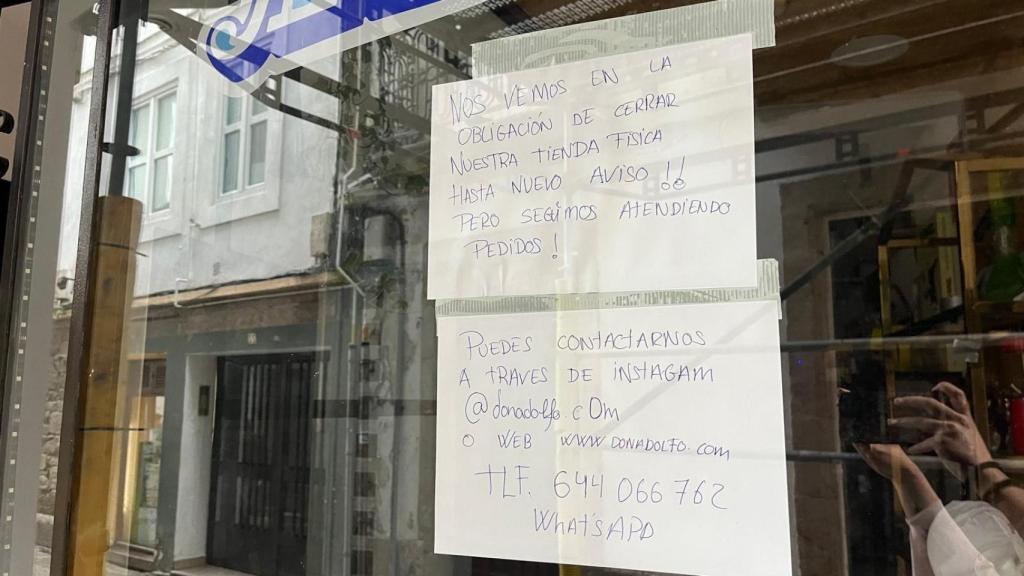 NOS VEMOS EN LA
OBLIGACIÓN DE CERRAR
NUESTRA TIENDA FISICA
HASTA NUEVO AVISO !!
PERO SEGUIMOS ATENDIENDO
PEDIDOS !
PUEDES CONTACTARNOS
A TRAVES DE INSTAGAM
@donadolfo.c0m
O WEB WWW.DONADOLFO.COM
TLF. 644 066 762
WHAT'SAPP